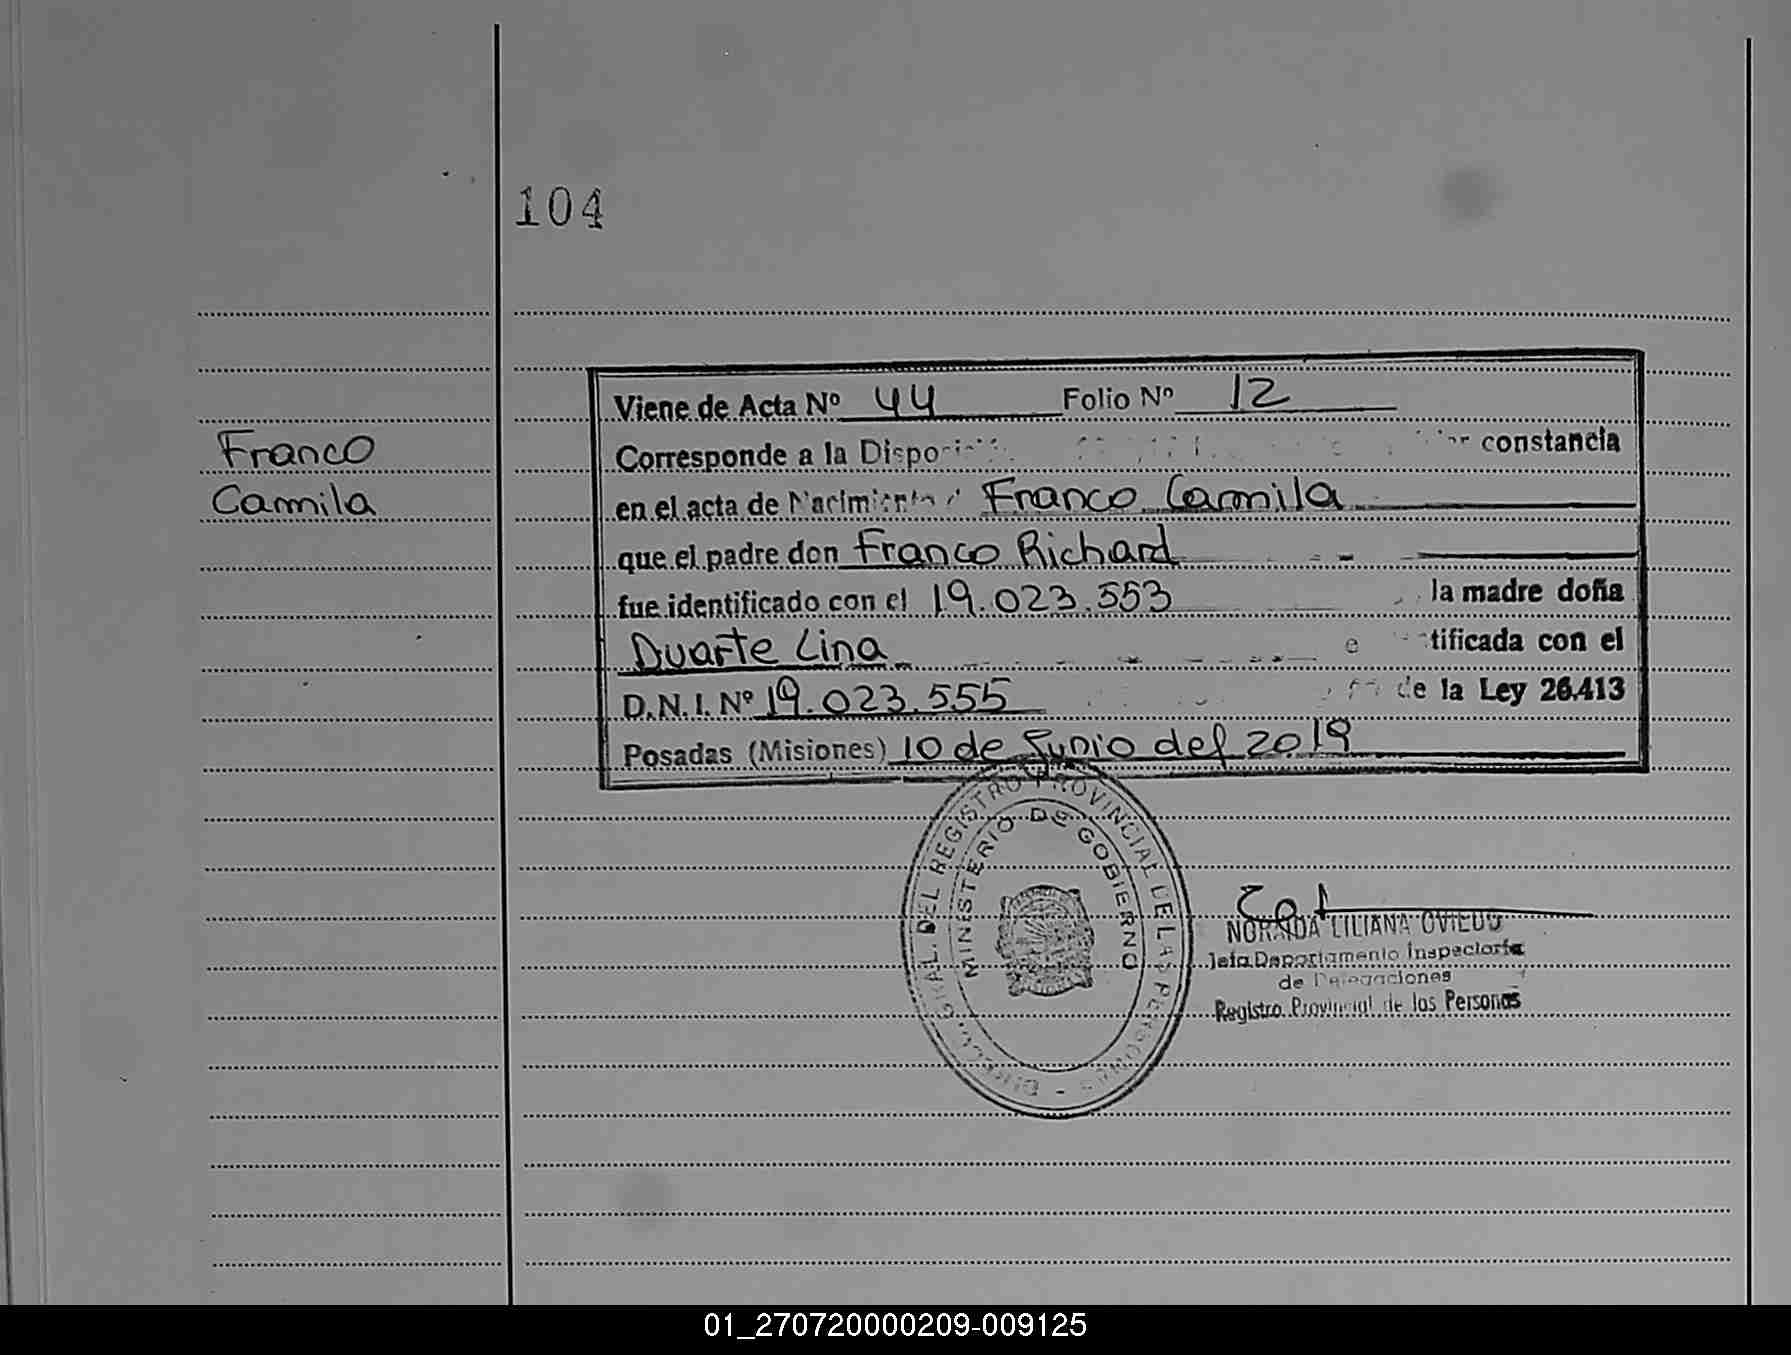 104
Viene de Acta Nº 44 Folio Nº 12
Franco
Camila
Corresponde a la constancia
en el acta de Nacimiento Franco Camila
que el padre don Franco Richard
fue identificado con el 19.023.553 la madre doña
Duarte Lina tificada con el
D.N.I. Nº 19.023.555 de la Ley 26.413
Posadas (Misiones) 10 de Junio del 2019
GRAL. DEL REGISTRO PROVINCIAL DE LAS PERSONAS -
MINISTERIO DE GOBIERNO
LILIANA OVIEDO
Jefa Departamento Inspectoría
de Delegaciones
Registro Provincial de las Personas
01_270720000209-009125